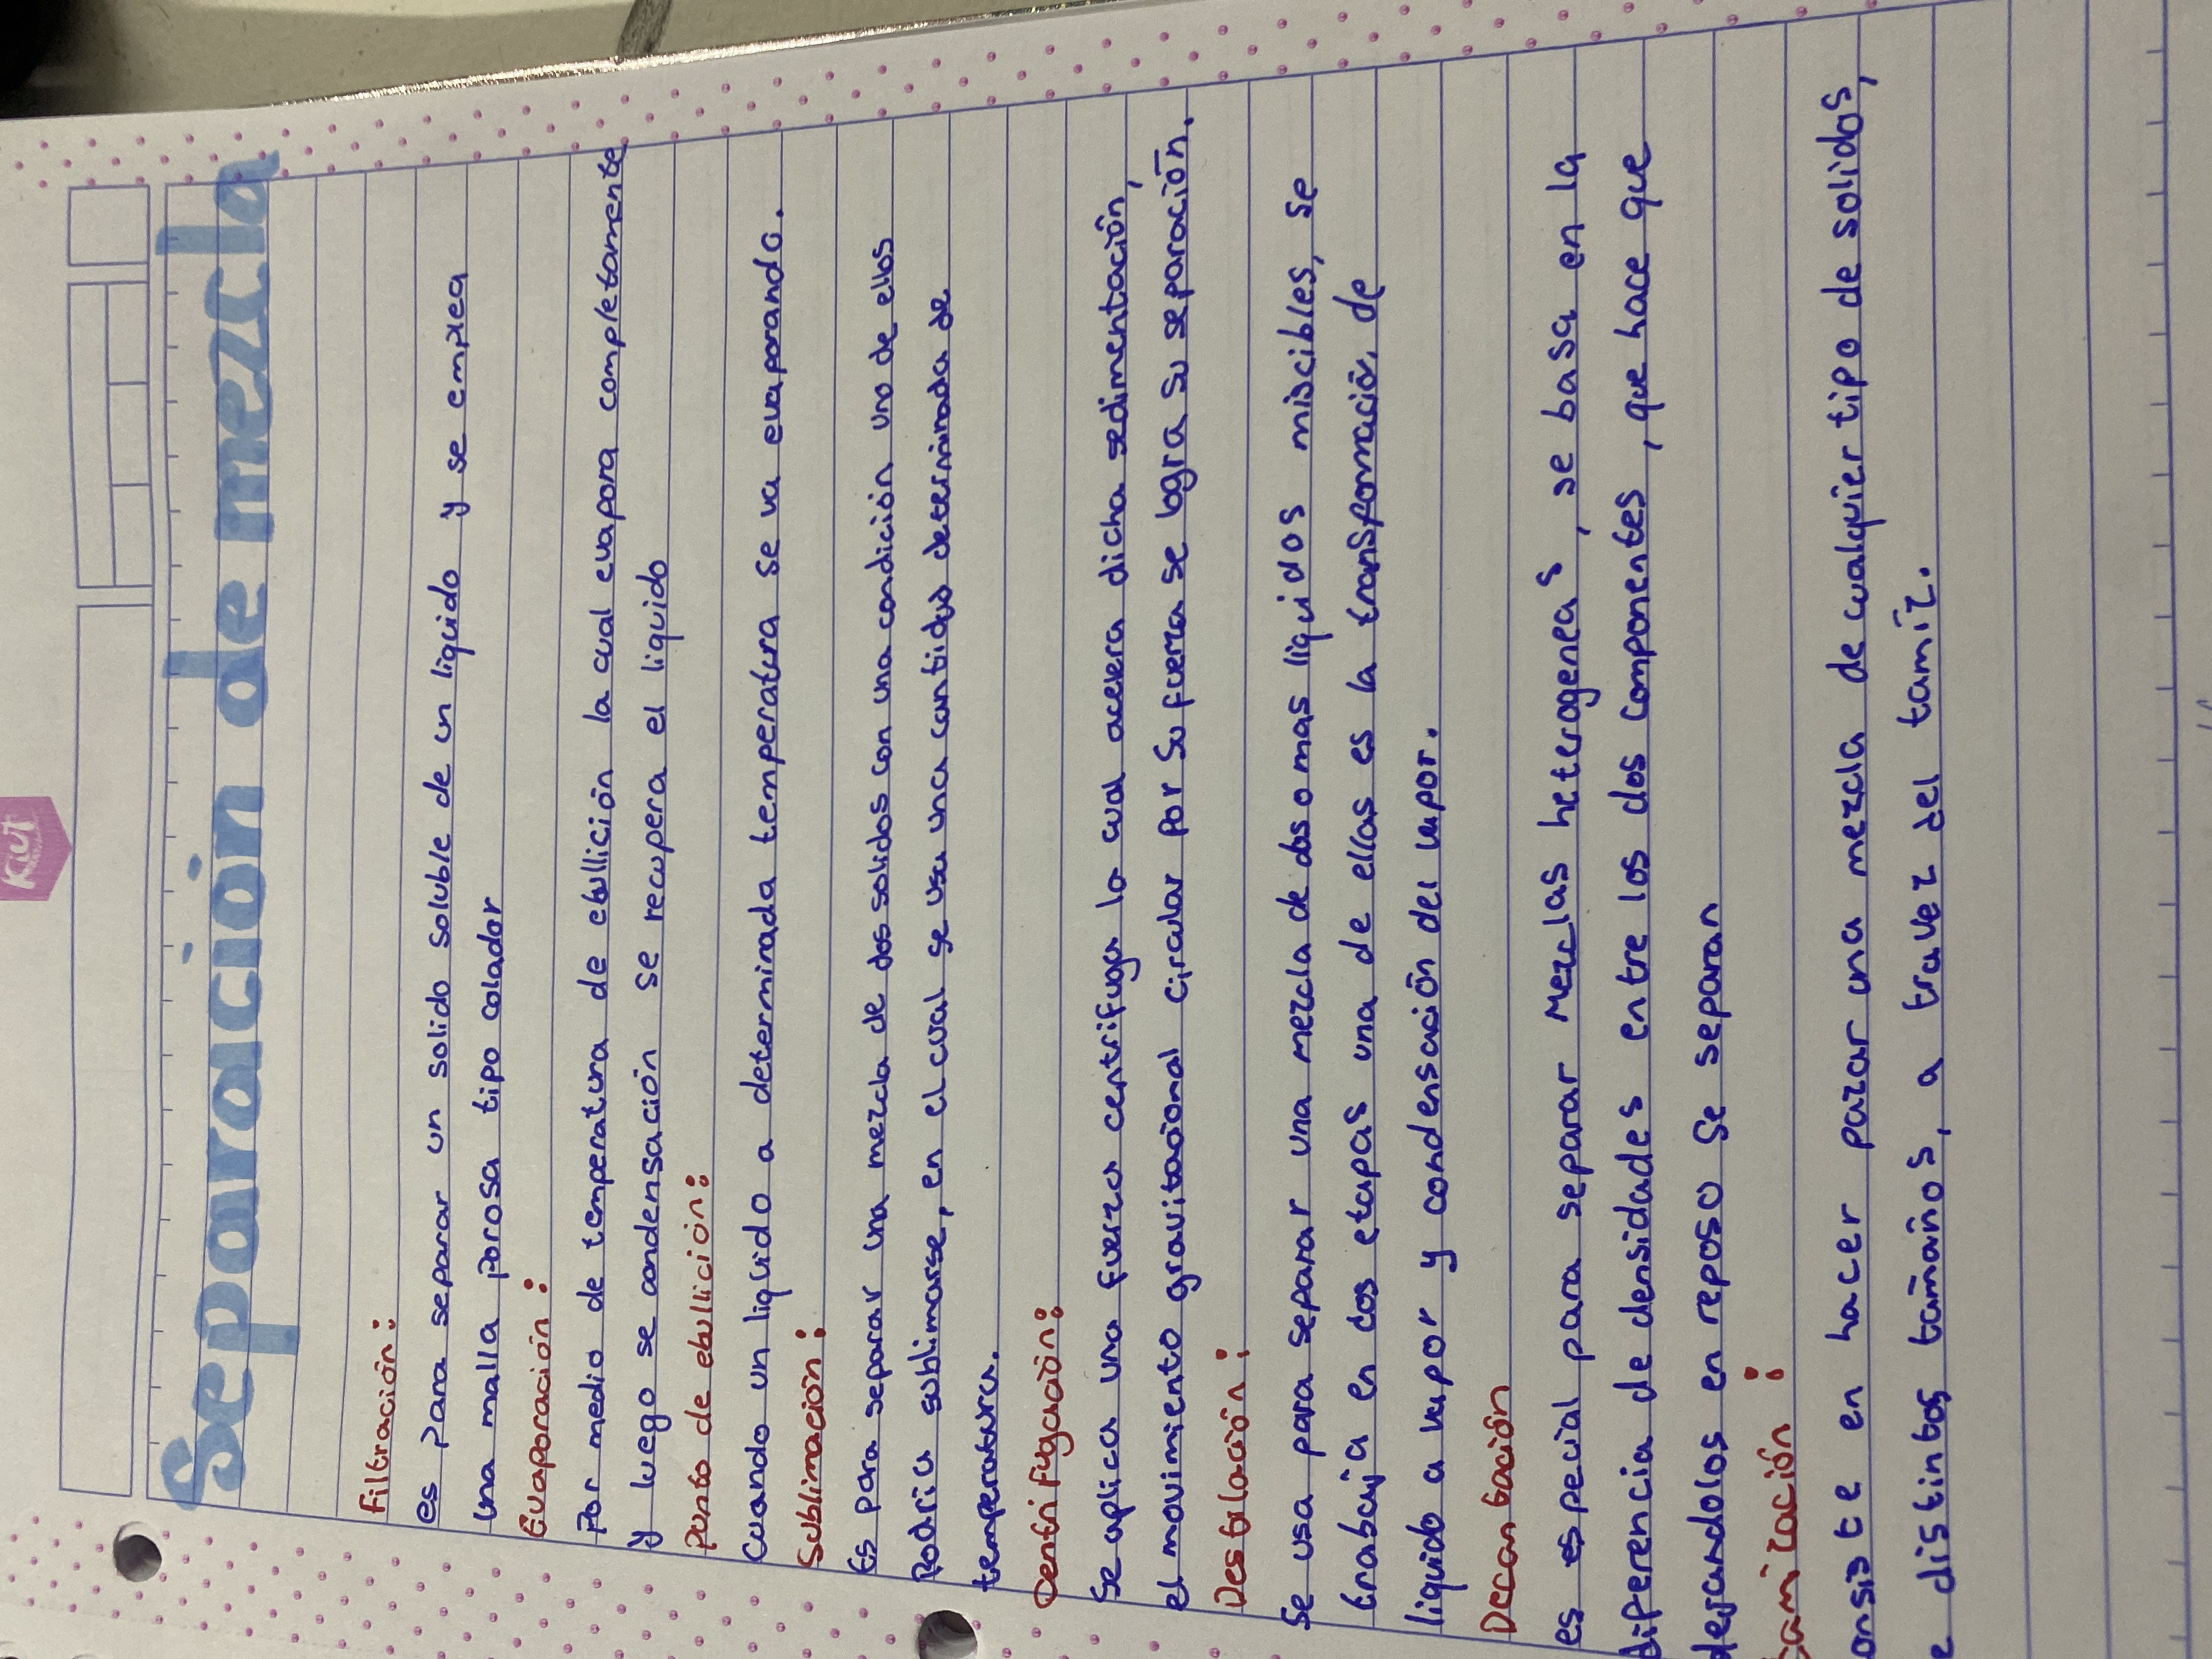 Kiut
Separación de mezcla
Filtración:
es para separar un solido soluble de un liquido y se emplea
una malla porosa tipo colador
Evaporación:
Por medio de temperatura de ebullición la cual evapora completamente
y luego se condensación se recupera el liquido
Punto de ebullición:
Cuando un liquido a determinada temperatura se va evaporando.
Sublimación:
Es para separar una mezcla de dos solidos con una condición uno de ellos
Podria sublimarse, en el cual se usa una cantidad determinada de
temperatura.
Centrifugación:
Se aplica una fuerza centrifuga lo cual acelera dicha sedimentación,
el movimiento gravitacional circular por su fuerza se logra su separación.
Destilación:
Se usa para separar una mezcla de dos o mas liquidos miscibles, se
trabaja en dos etapas una de ellas es la transformación de
liquido a vapor y condensación del vapor.
Decantación
es especial para separar mezclas heterogeneas, se basa en la
diferencia de densidades entre los dos componentes, que hace que
dejandolos en reposo se separan
tamización:
onsiste en hacer pazar una mezcla de cualquier tipo de solidos,
e distintos tamaños, a travez del tamiz.